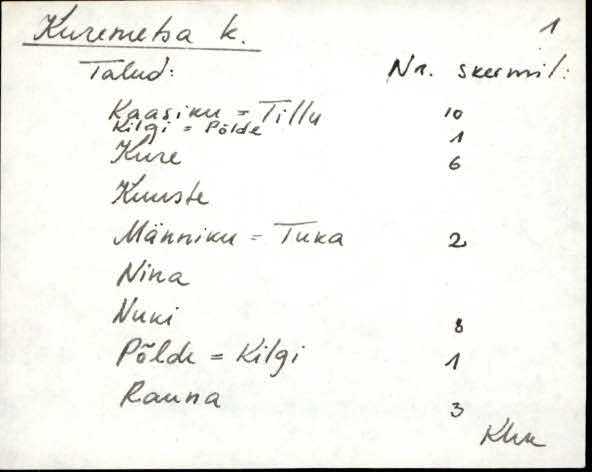 Kuremetsa k. 1
Talud: Nr. skeemil:
Kaasiku = Tillu 10
Kilgi = Põlde 1
Kure 6
Kuuste
Männiku = Tuka 2
Nina
Nuki 8
Põlde = Kilgi 1
Rauna 3